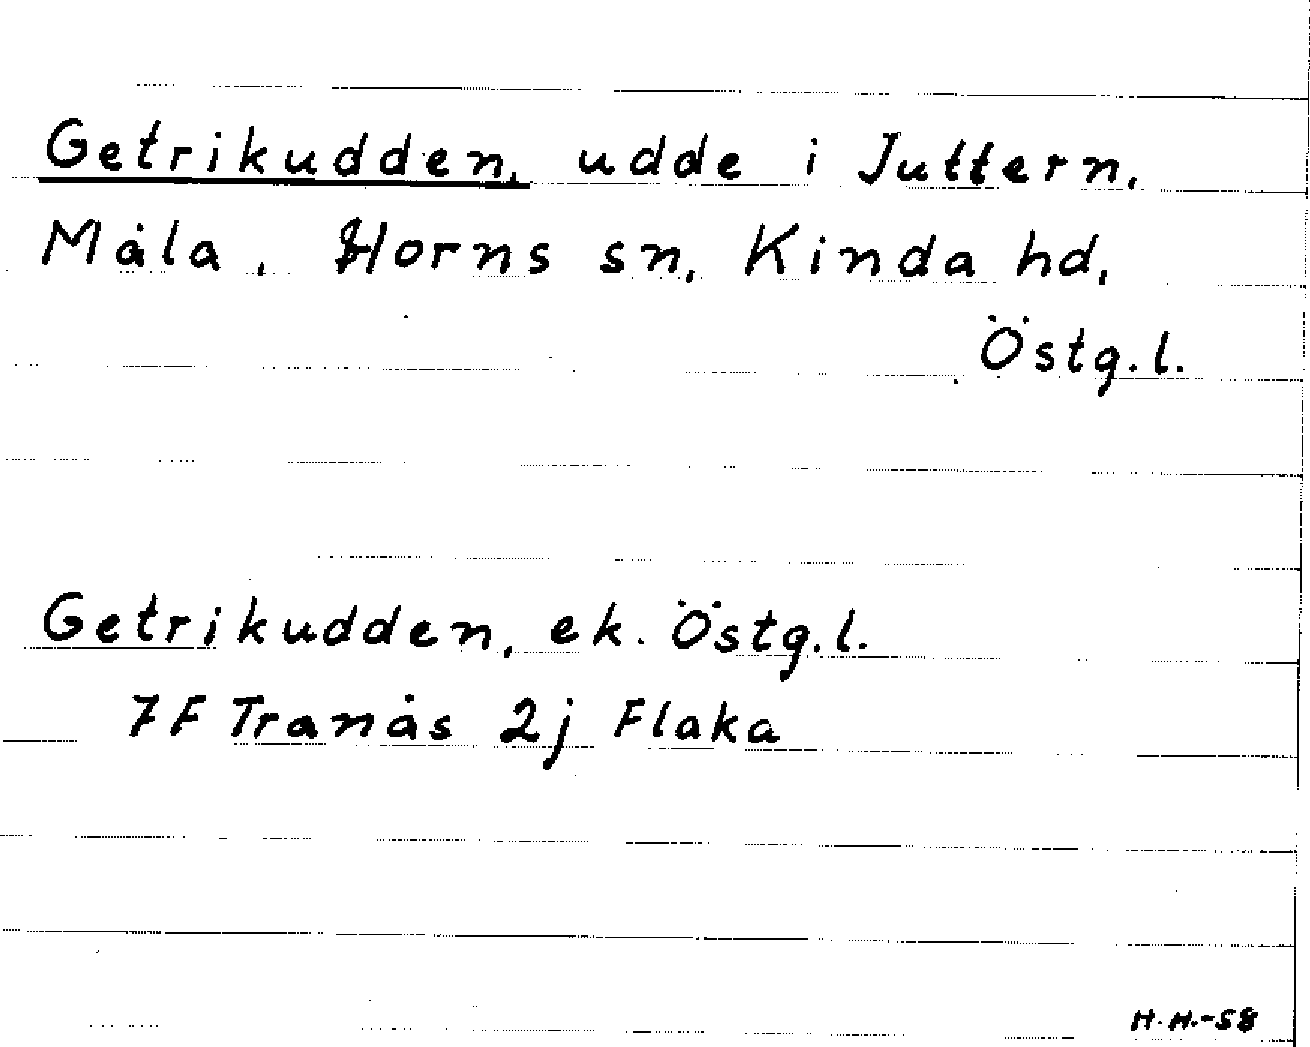 Getrikudden, udde i Juttern,
Måla, Horns sn, Kinda hd,
Östg.l.
Getrikudden, ek. Östg.l.
7F Tranås 2j Flaka
H.H.-58